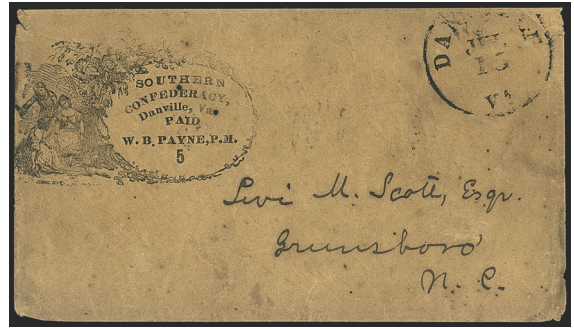 SOUTHERN
CONFEDERACY,
Danville, Va.
PAID
W. B. PAYNE, P.M.
5
JUL
15
VA
Levi M. Scott, Esqr.
Greensboro
N. C.